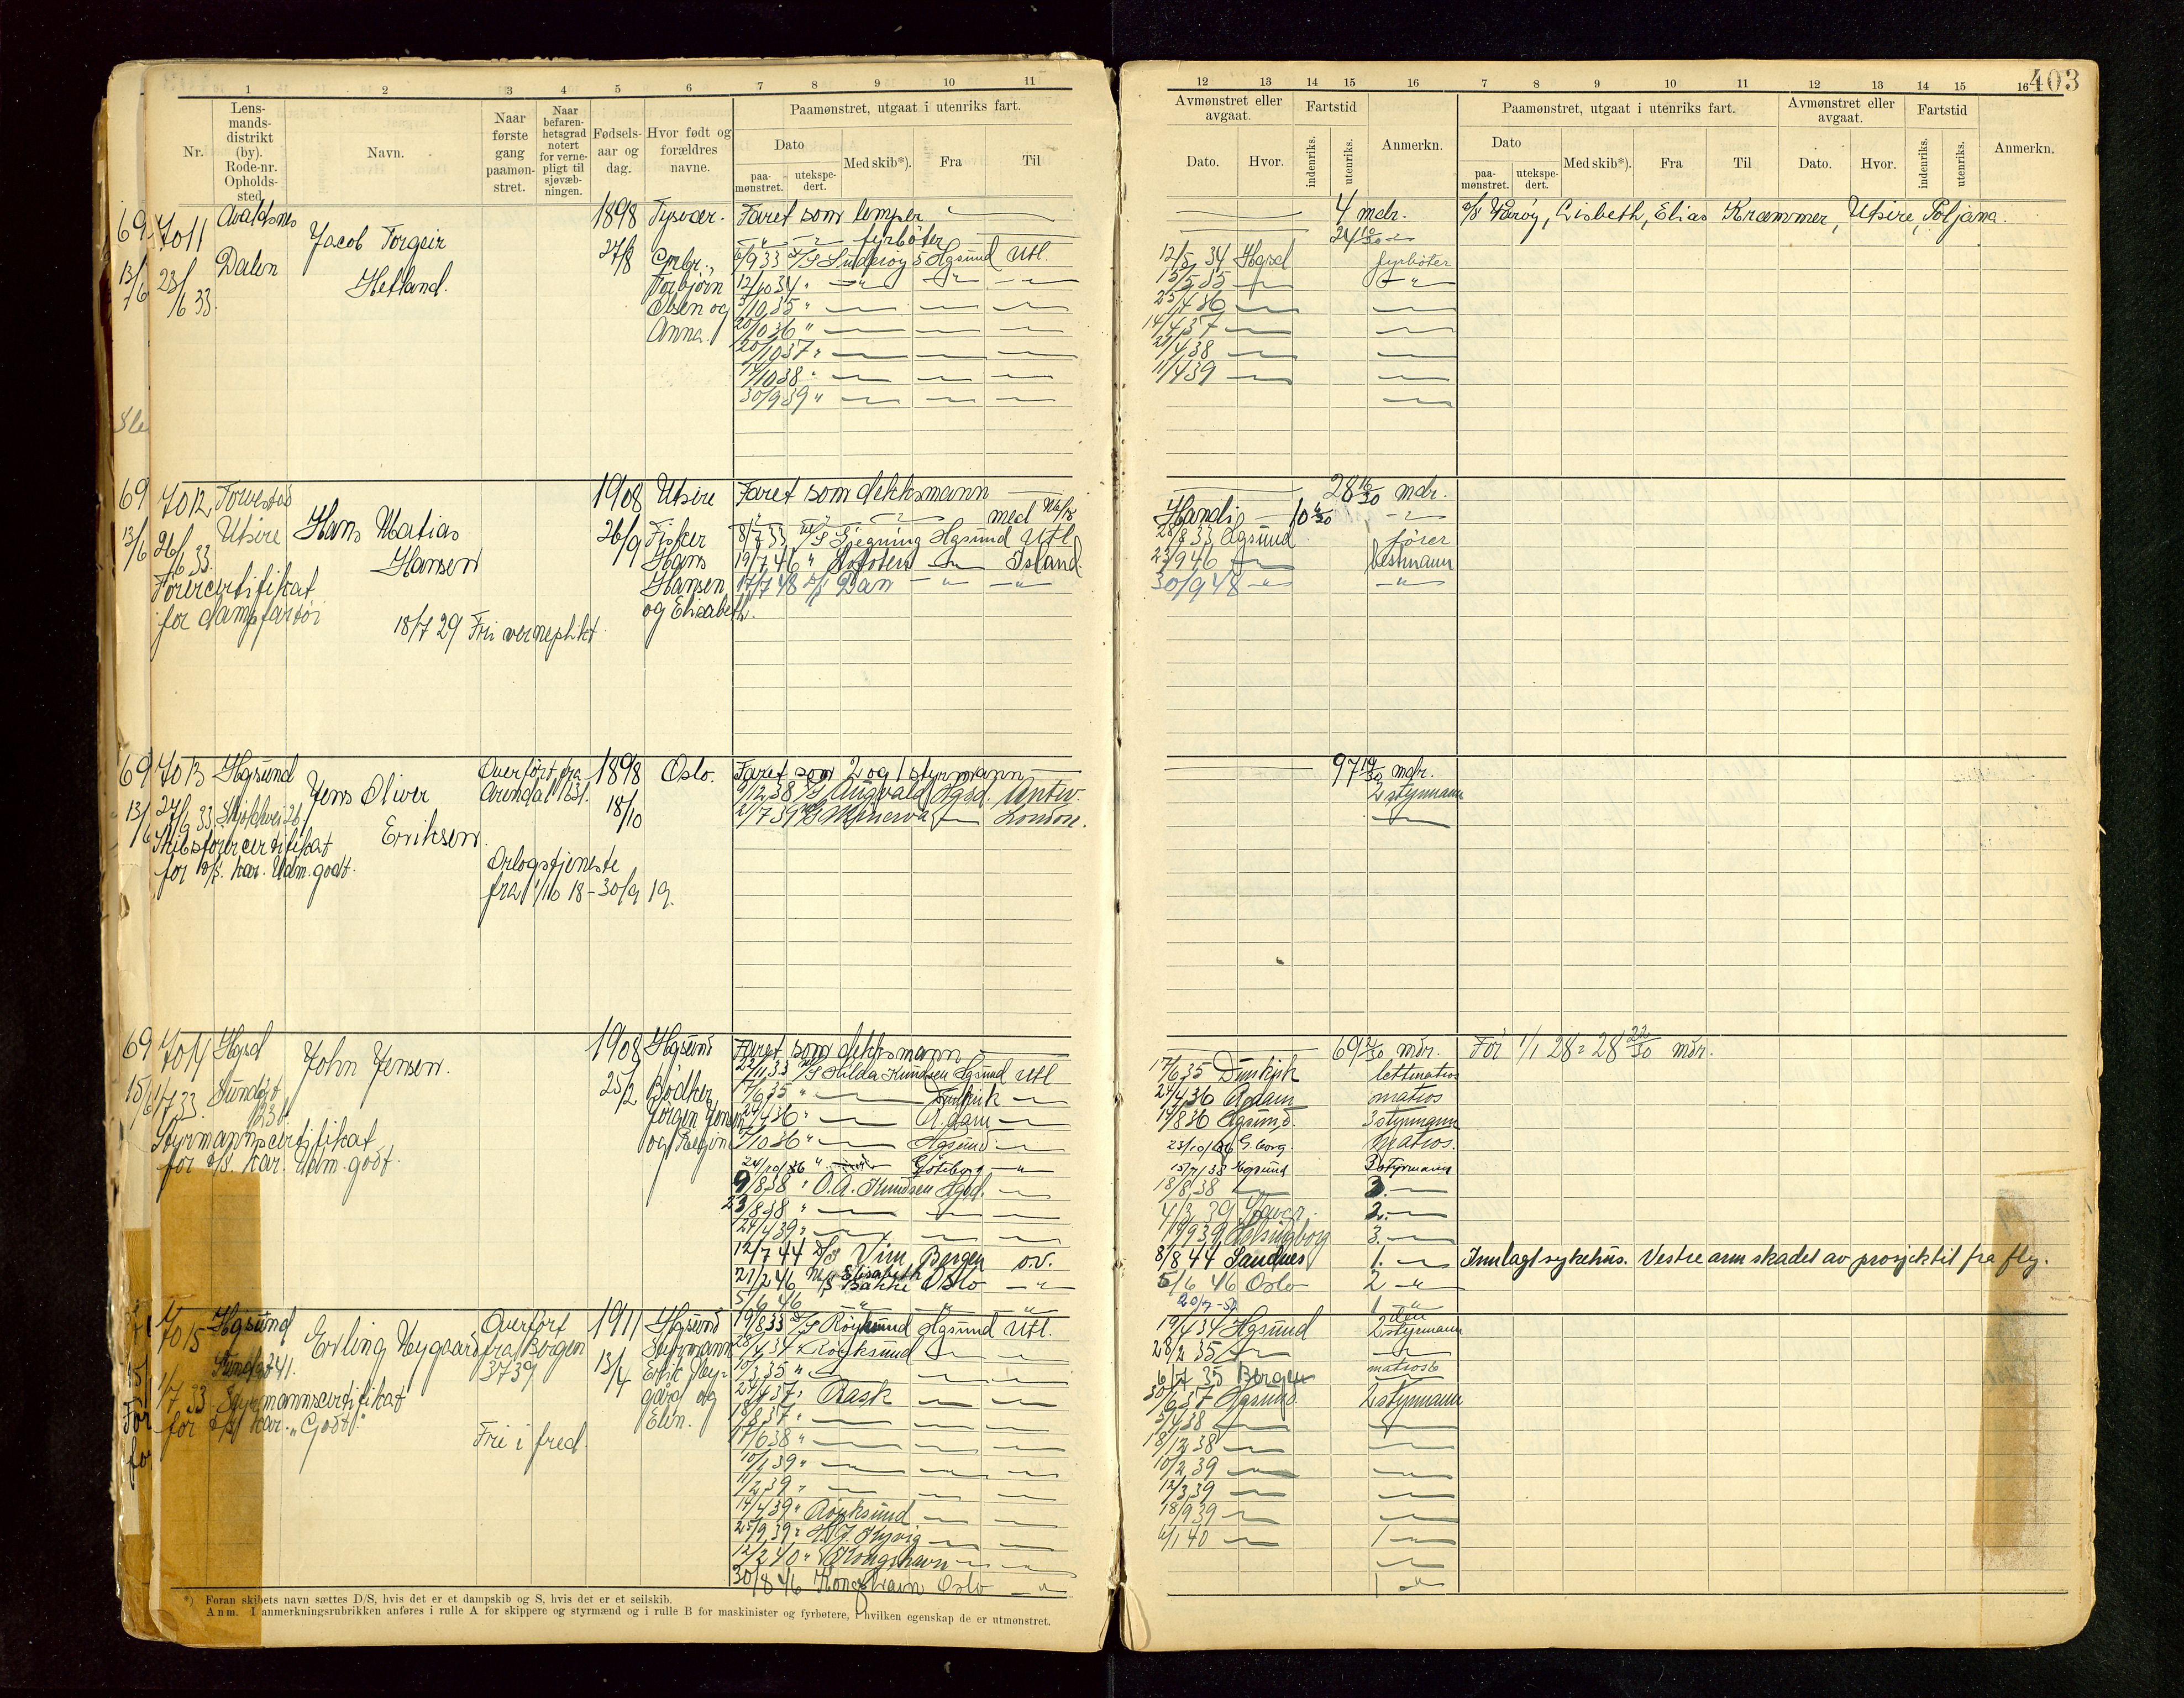 403
1 2 3 4 5 6 7 8 9 10 11
Nr.
Lens-
mands-
distrikt
(by).
Rode-nr.
Opholds-
sted.
Navn.
Naar
første
gang
paamøn-
stret.
Naar
befaren-
hetsgrad
notert
for verne-
pligt til
sjøvæb-
ningen.
Fødsels-
aar og
dag.
Hvor født og
forældres
navne.
Paamønstret, utgaat i utenriks fart.
Dato
paa-
mønstret.
utekspe-
dert.
Med skib*).
Fra
Til
12 13 14 15 16 7 8 9 10 11 12 13 14 15 16
Avmønstret eller
avgaat.
Dato. Hvor.
Fartstid
indenriks. utenriks.
Anmerkn.
Paamønstret, utgaat i utenriks fart.
Dato
paa-
mønstret.
utekspe-
dert.
Med skib*).
Fra
Til
Avmønstret eller
avgaat.
Dato. Hvor.
Fartstid
indenriks. utenriks.
Anmerkn.
7011 Avaldsnes Jacob Torgeir 1898 Tysvær. Faret som lemper 4 mdr.
Dalen Hetland. 27/8 fyrbøter 24 10/30
23/6 33.
Gmbr.
Torbjørn
Olsen og
Anna.
6/9 33 D/S Suderøy 5 Hgsund Utl. 12/5 34 Hgsd fyrbøter
12/10 34 " 15/5 35
3/10 35 " 25/4 36
20/10 36 " 14/4 37
20/10 37 " 21/4 38
14/10 38 " 11/4 39
30/9 39 "
Lisbeth, Elias Kræmmer, Utsire, Poljana.
7012 Torvestad Hans Matias 1908 Utsire Faret som dekksmann 28 16/30 mdr.
Utsire Hansen 26/9
26/6 33.
Førercertifikat
for dampfartøi
18/7 29 Fri verneplikt.
Fisker
Hans
Hansen
og Elisabeth.
8/7 33 Hgsund Utl. 28/8 33 Hgsund fører
19/7 46 " Lofoten Island. 23/9 46 bestmann
17/7 48 Dan 30/9 48
7013 Hgsund Jens Oliver Overført fra 1898 Oslo. Faret som 2 og 1 styrmann 97 19/30 mdr.
Eriksen. Arendal 18/10
Skibsførercertifikat
for D/S. Kar. Udm. godt.
Orlogstjeneste
fra 1/10 18 - 30/9 19.
9/12 38 D/S Augvald Hgsd. Antw. 2 styrmann
2/7 39 Minerva London.
7014 Hgsd John Jensen. 1908 Hgsund Faret som dekksmann 69 mdr. Før 1/1 28 = 28 22/30 mdr.
1/7 33. Sundgt 25/2
23b.
Styrmannscertifikat
for D/S. Kar. Udm. godt.
Bødker
Jørgen Jensen
og Regine
22/11 33 Hilda Knudsen Hgsund Utl 17/6 35 Dunkirk lettmatros
17/6 35 " Dunkirk 24/4 36 R.dam matros
24/4 36 " R.dam 14/8 36 Hgsund. 3 styrmann
7/10 36 " Hgsund 23/10/36 G.borg. Matros.
24/10/36 " Göteborg 15/7/38 Hgsund 3 styrmann
9/8 38 " O.A. Knudsen Hgsd. 18/8 38 3.
23/8 38 " 4/3 39 2.
24/4 39 " 19/9 39 Helsingborg 3.
12/7 44 D/S Vim Bergen o.v. 8/8 44 Sandnes 1. Innlagt sykehus. Venstre arm skadet av prosjektil fra fly.
21/2 46 M/S Elisabeth Bakke Oslo 5/6 46 Oslo 2
5/6 46
7015 Hgsund Erling Nygaard Overført 1911 Hgsund
1/7 33 fra Bergen 13/4
3739
Styrmannscertifikat
for D/S Kar. "Godt"
Fri i fred.
Styrmann
Erik Ny-
gård og
Elin.
19/8 33 D/S Røyksund Hgsund Utl. 19/4 34 Hgsund 2 styrmann
28/4 34 Røyksund 28/2 35
10/3 35 " 6/7 35 Bergen matros
24/4 37 " Rask 30/6 37 Hgsund. 2 styrmann
18/8 37 " 5/4 38
17/6 38 " 18/12 38
10/1 39 " 10/2 39
11/2 39 " 12/3 39
14/4 39 " Røyksund 18/9 39
25/9 39 " H. J. Kyvig 6/1 40 1
12/2 40 " Kongshavn
30/8 46 Kongshavn Oslo 1
*) Foran skibets navn sættes D/S, hvis det er et dampskib og S, hvis det er et seilskib.
Anm. I anmerkningsrubrikken anføres i rulle A for skippere og styrmænd og i rulle B for maskinister og fyrbøtere, i hvilken egenskap de er utmønstret.